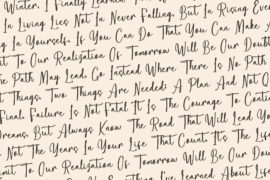 Winter, I Finally Learned
In Living Lies Not In Never Falling, But In Rising Ever
ing In Yourself. If You Can Do That, You Can Make
mit To Our Realization Of Tomorrow Will Be Our Doubt
he Path May Lead, Go Instead Where There Is No Path
t Things, Two Things Are Needed: A Plan And Not Q
Final, Failure Is Not Fatal: It Is The Courage To Contin
Dreams, But Always Know The Road That Will Lead You
Not The Years In Your Life That Count. It's The Life
imit To Our Realization Of Tomorrow Will Be Our Dou
Something I've Learned About Life